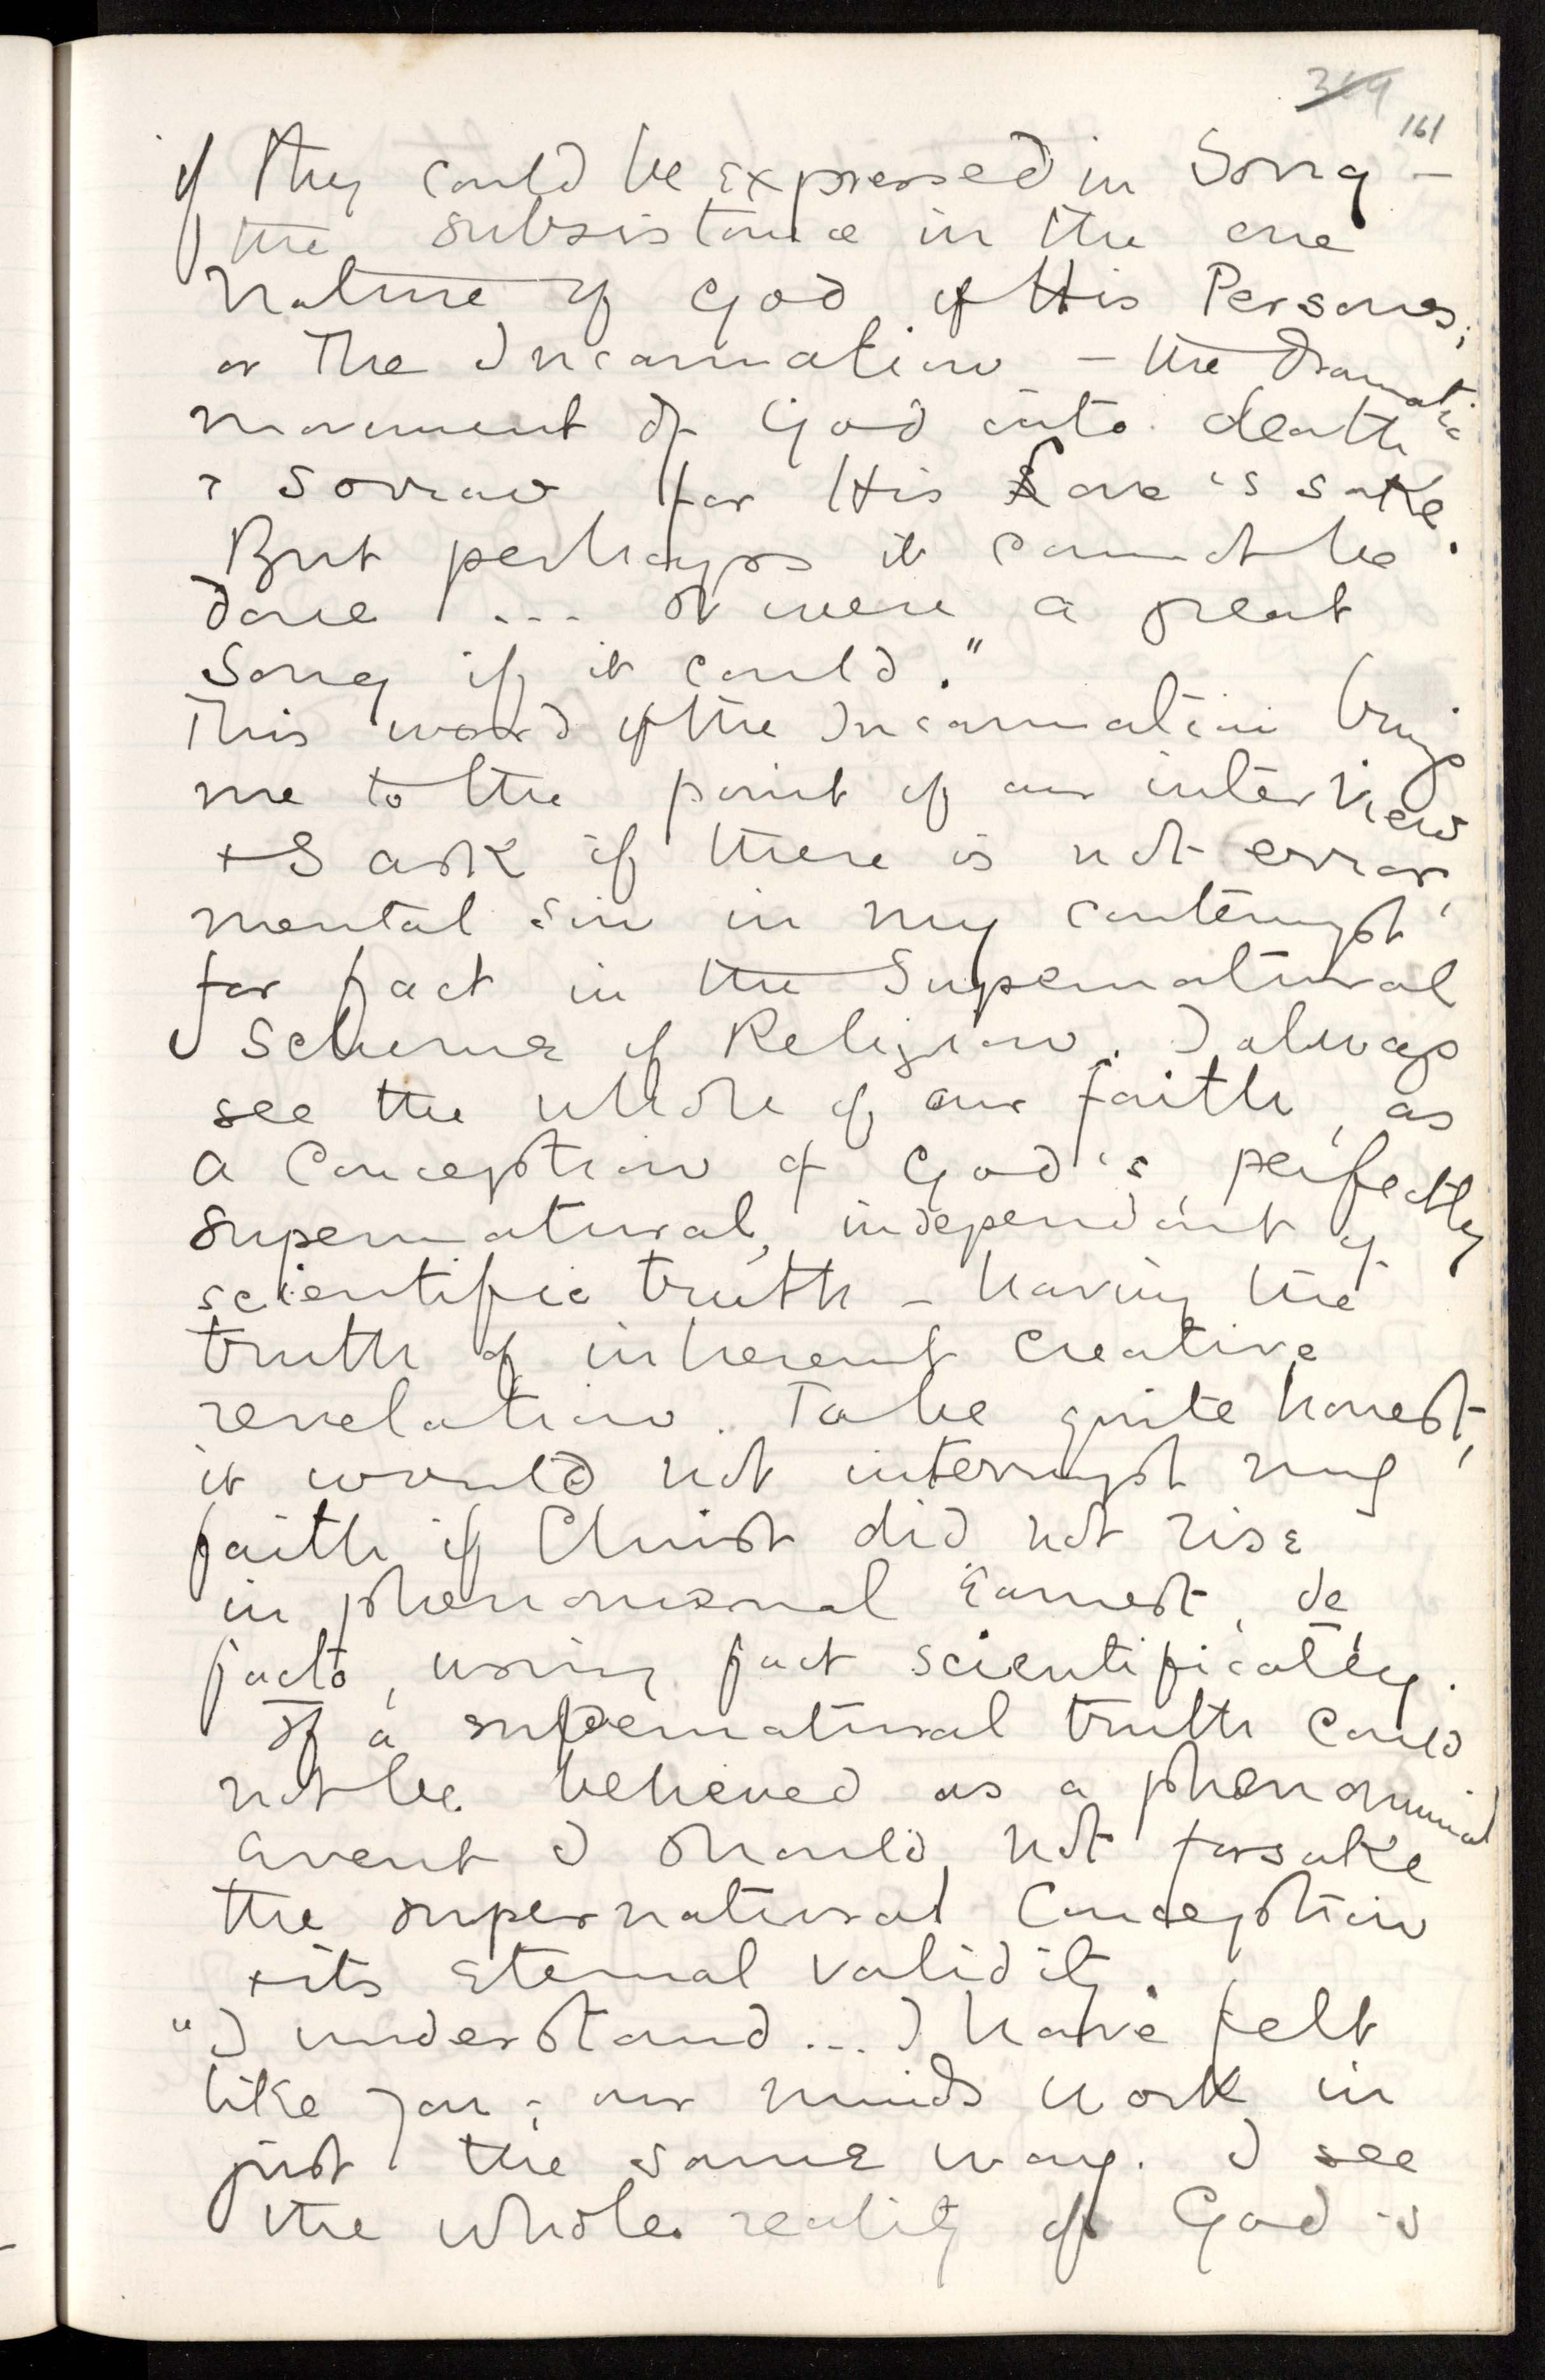 161
if they could be expressed in Song –
the subsistence in the one
nature of God of His Persons;
or the Incarnation – the dramatic
movement of God into death
& sorrow for His Love's sake.
But perhaps it cannot be
done ... It were a great
song if it could."
This word of the Incarnation brings
me to the point of our interview
+ I ask if there is not error,
mental sin in my contempt
for fact in the Supernatural
Scheme of Religion. I always
see the whole of our faith, as
a Conception of God's, perfectly
supernatural, independant of
scientific truth – having the
truth of inherent creative
revelation. To be quite honest,
it would not interrupt my
faith if Christ did not rise
in phenomenal earnest, de
facto, using fact scientifically.
If a supernatural truth could
not be believed as a phenomenal
event I should not forsake
the supernatural Conception
+ its eternal validity.
"I understand ... I have felt
like you; our minds work in
just the same way. I see
the whole reality of God's